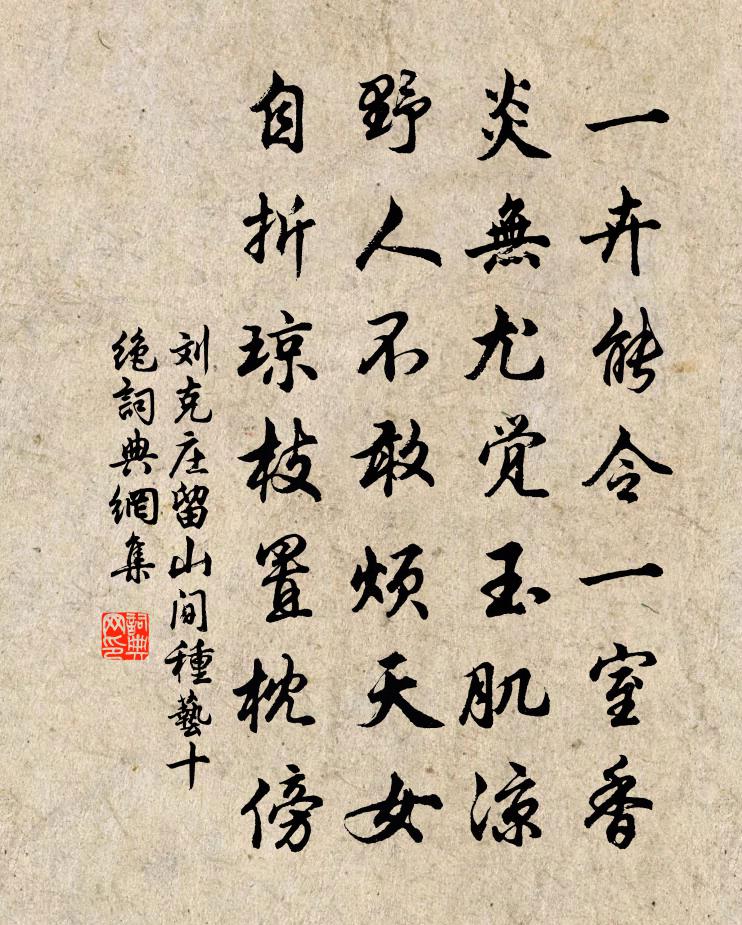 一卉能令一室香
炎無尤觉玉肌涼
野人不敢烦天女
自折琼枝置枕傍
刘克庄留山间種藝十
绝詞典網集
詞典
网印